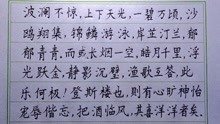 波澜不惊,上下天光,一碧万顷,沙
鸥翔集,锦鳞游泳,岸芷汀兰,郁
郁青青,而或长烟一空,皓月千里,浮
光跃金,静影沉璧,渔歌互答,此
乐何极!登斯楼也,则有心旷神怡
宠辱偕忘,把酒临风,其喜洋洋者矣。